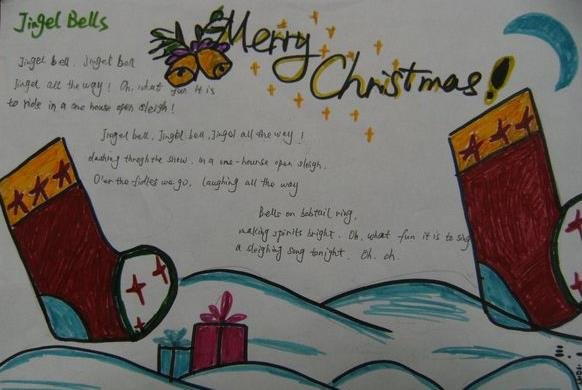 Jingel Bells
Merry
Christmas!
Jingel bell, Jingel bell
Jingel all the way! Oh, what fun it is
to ride in a one house open sleigh!
Jingel bell, Jingel bell, Jingel all the way!
dashing throghe the snow, in a one-hourse open sleigh,
O'er the fidles we go, laughing all the way
Bells on bobtail ring,
making spirits bright. Oh, what fun it is to sing
a sleighing song tonight. Oh, oh.